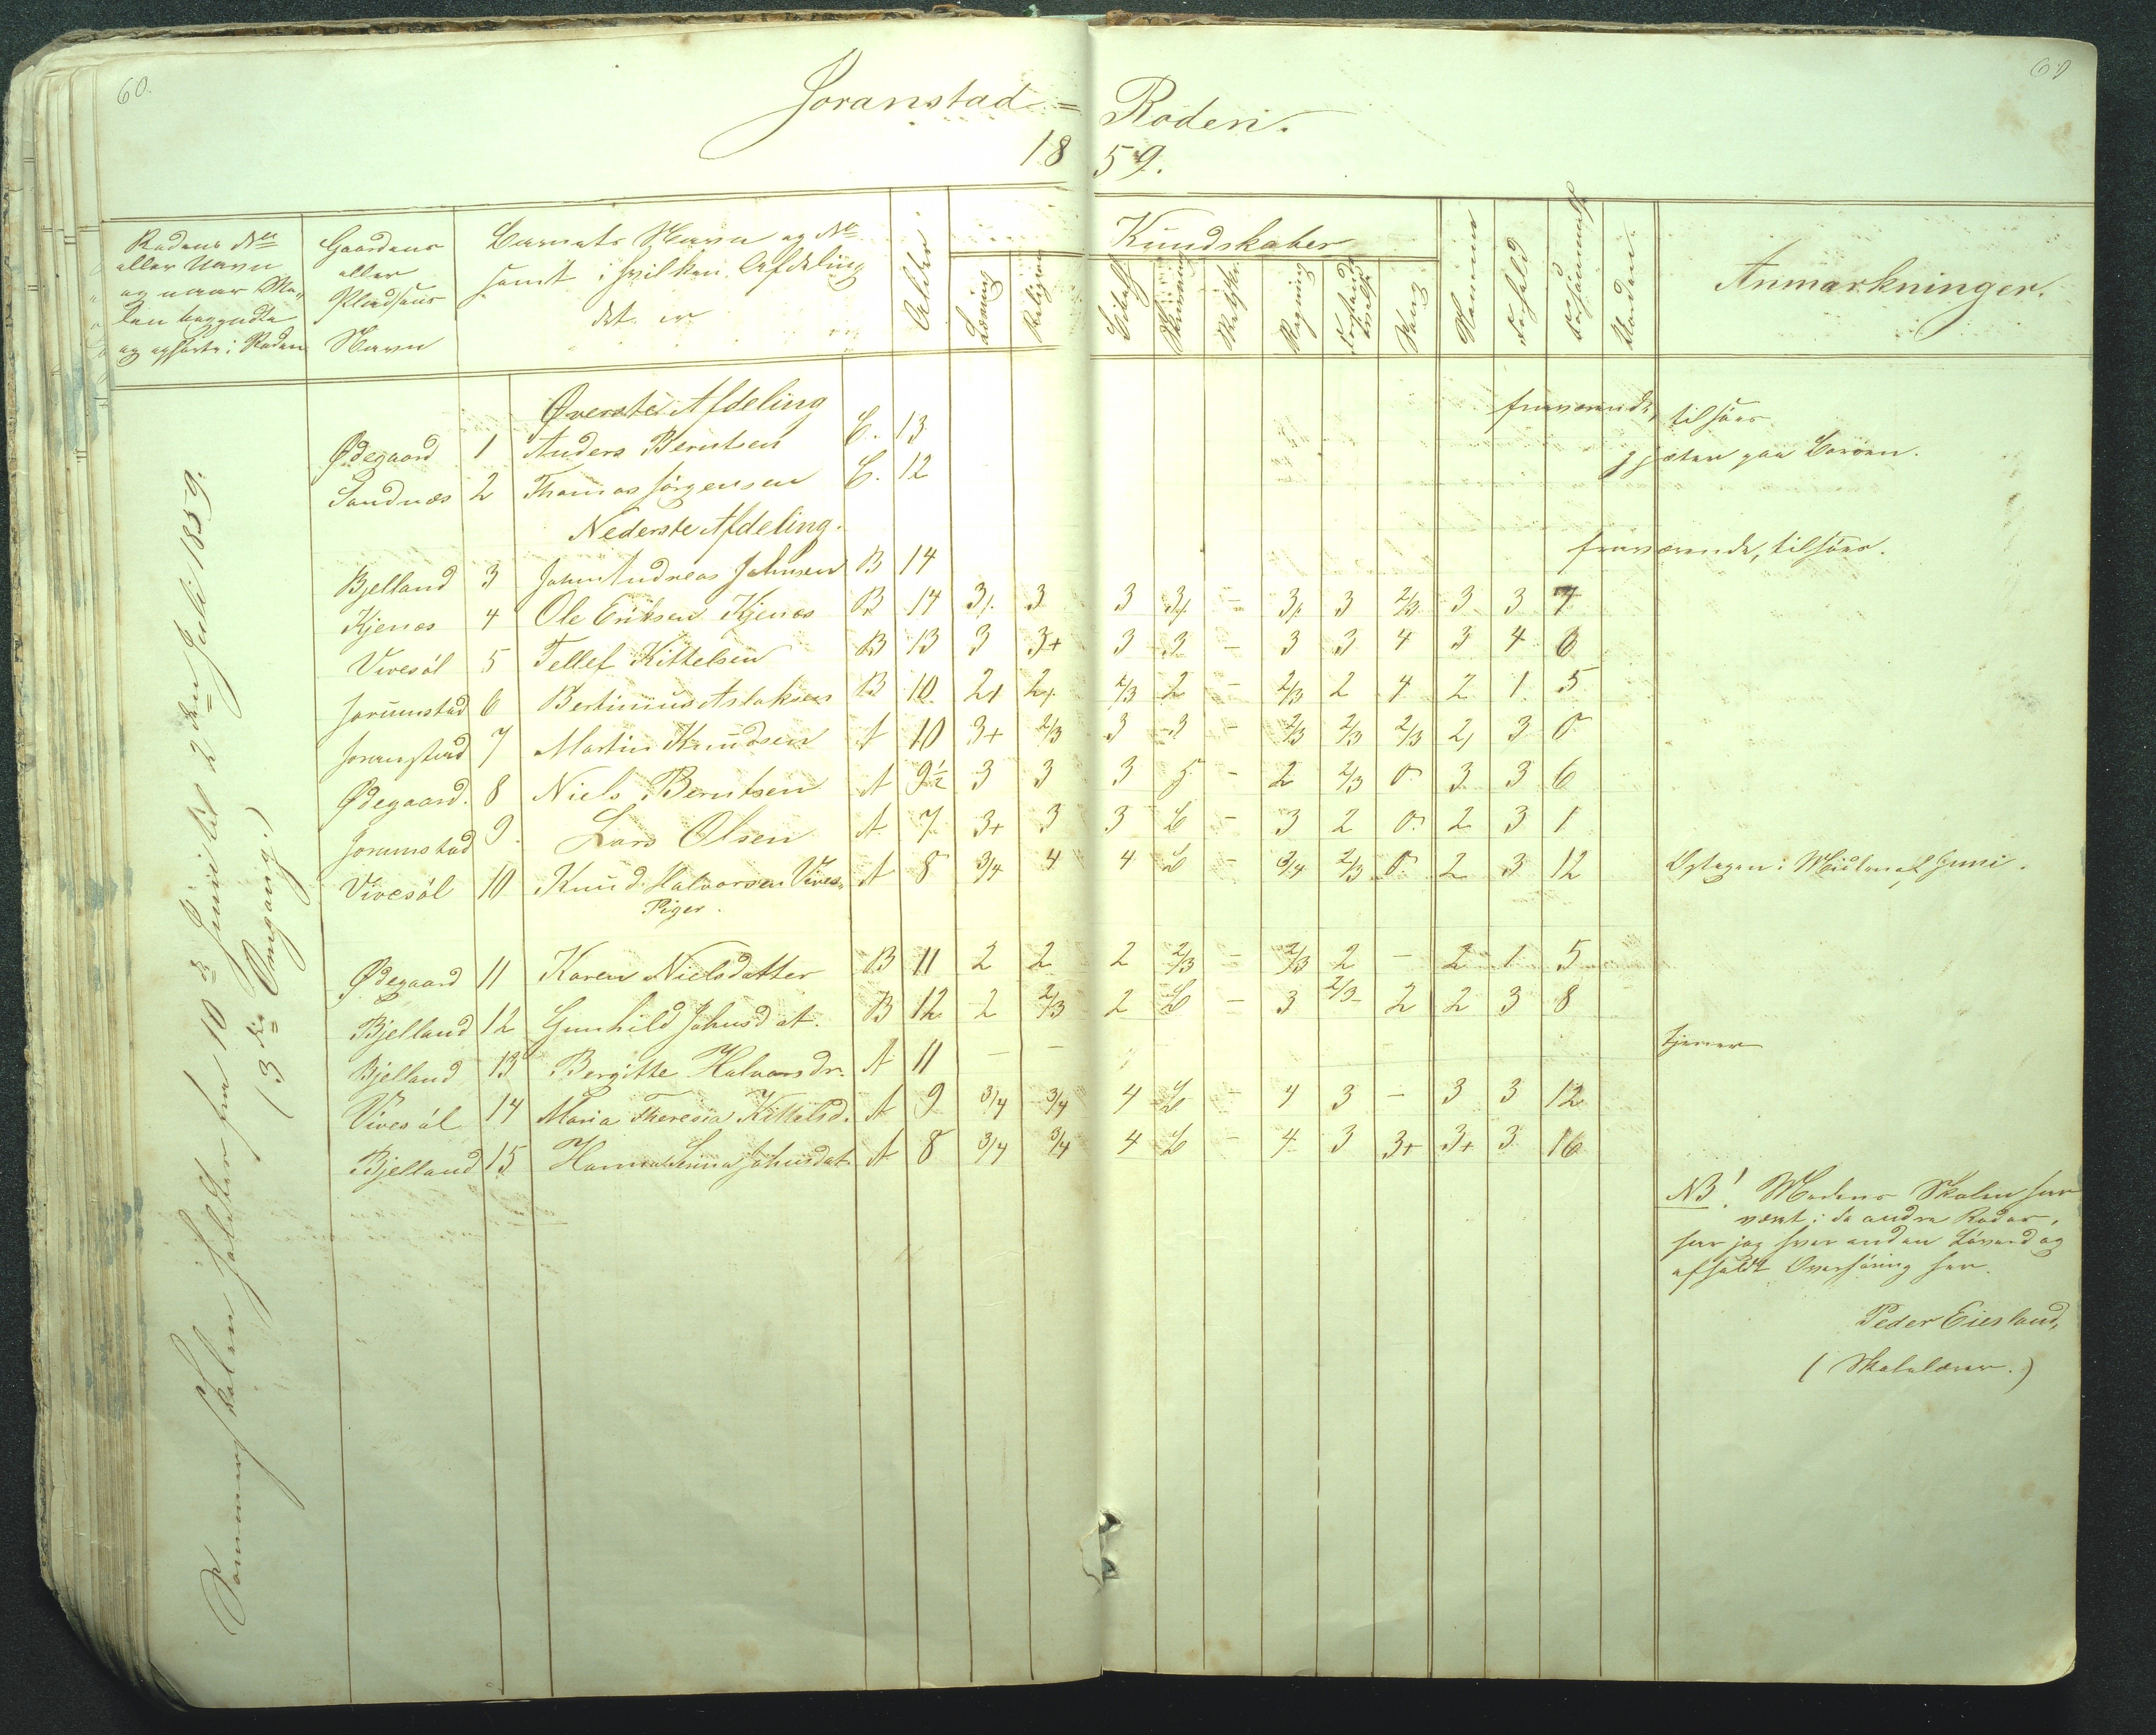 60.
61
Joranstad = Roden.
1859.
Rodens No
eller Navn
og naar Sko-
len begyndte
og ophørte i Roden
Gaardens
eller
Pladsens
Navn
Barnets Navn og No
samt i hvilken Afdeling
det er
Alder
Kundskaber
Læsning
Religion
Skrivning
Regning
Sang
Nemme
Forhold
Forsømmelse
Anmærkninger.
Sommerskolen holdtes fra 10de Juni til 2den Juli 1859.
(3die Omgang.)
Øverste Afdeling
Ødegaard 1 Anders Berntsen C. 13 fraværende, tilsøes
Sandnæs 2 Thomas Jörgensen C. 12 gjæter paa Borøen.
Nederste Afdeling.
Bjelland 3 John Andreas Johnsen B 14 fraværende, tilsøes.
Kjenes 4 Ole Eriksen Kjenes B 14 3/. 3 3 3/. - 3/. 3 2/3 3 3 7
Vivesöl 5 Tellef Kittelsen B 13 3 3+ 3 3 - 3 3 4 3 4 6
Jorunstad 6 Bertinius Aslaksen B 10 2/. 2/. 2/3 2 - 2/3 2 4 2 1 5
Joranstad 7 Martin Knudsen A 10 3+ 2/3 3 3 - 2/3 2/3 2/3 2/ 3 0
Ødegaard. 8 Niels Berntsen A 9½ 3 3 3 5 - 2 2/3 0 3 3 6
Jorunstad 9. Lars Olsen A 7 3+ 3 3 L - 3 2 0 2 3 1
Vivesöl 10 Knud Halvorsen Vives. A 8 3/4 4 4 L - 3/4 2/3 0 2 3 12 Optagen i Midten af Juni.
Piger.
Ødegaard 11 Karen Nielsdatter B 11 2 2 2 2/3 - 2/3 2 - 2 1 5
Bjelland 12 Gunhild Johnsdat. B 12 2 2/3 2 L - 3 2/3 2 2 3 8
Bjelland 13 Bergitte Halvorsdr. A 11 - - tjener
Vivesöl 14 Maria Theresia Kittelsd. A 9 3/4 3/4 4 L - 4 3 - 3 3 12
Bjelland 15 Hanna Johnsdat. A 8 3/4 3/4 4 L - 4 3 3+ 3+ 3 16
NB! Medens Skolen har
været i de andre Roder,
har jeg hver anden Løverdag
afholdt Overhøring her.
Peder Eiesland,
(Skolelærer.)